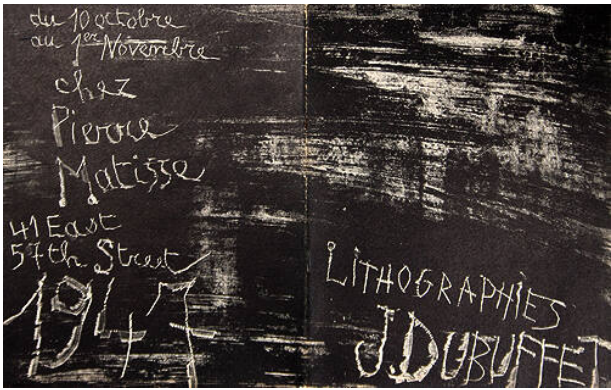 du 10 octobre
au 1er Novembre
chez
Pierre
Matisse
41 East
57th Street
1947
LiTHOGRAPHiES
J.DUBUFFET